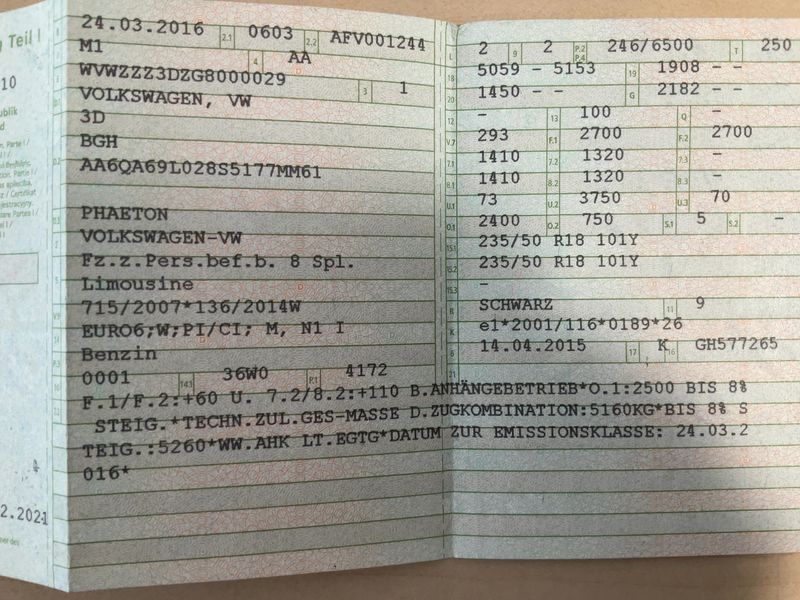 g Teil I
10
publik
d
2.2021
24.03.2016 2.1 0603 2.2 AFV001244
M1 4 AA
WVWZZZ3DZG8000029 3 1
VOLKSWAGEN, VW
3D
BGH
AA6QA69L028S5177MM61
PHAETON
VOLKSWAGEN-VW
Fz.z.Pers.bef.b. 8 Spl.
Limousine
715/2007*136/2014W
EURO6;W;PI/CI; M, N1 I
Benzin
0001 14.1 36W0 P.1 4172
L 2 9 2 P.2 P.4 246/6500 T 250
18 5059 - 5153 19 1908 - -
20 1450 - - G 2182 - -
12 - 13 100 Q -
V.7 293 F.1 2700 F.2 2700
7.1 1410 7.2 1320 7.3 -
8.1 1410 8.2 1320 8.3 -
U.1 73 U.2 3750 U.3 70
O.1 2400 O.2 750 S.1 5 S.2 -
15.1 235/50 R18 101Y
15.2 235/50 R18 101Y
15.3 -
R SCHWARZ 11 9
K e1*2001/116*0189*26
6 14.04.2015 17 K 16 GH577265
21
F.1/F.2:+60 U. 7.2/8.2:+110 B.ANHÄNGEBETRIEB*O.1:2500 BIS 8%
STEIG.*TECHN.ZUL.GES-MASSE D.ZUGKOMBINATION:5160KG*BIS 8% S
TEIG.:5260*WW.AHK LT.EGTG*DATUM ZUR EMISSIONSKLASSE: 24.03.2
016*